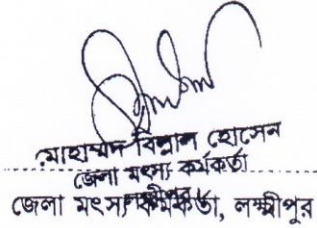 মোহাম্মদ বিল্লাল হোসেন
জেলা মৎস্য কর্মকর্তা
লক্ষ্মীপুর
জেলা মৎস্য কর্মকর্তা, লক্ষ্মীপুর